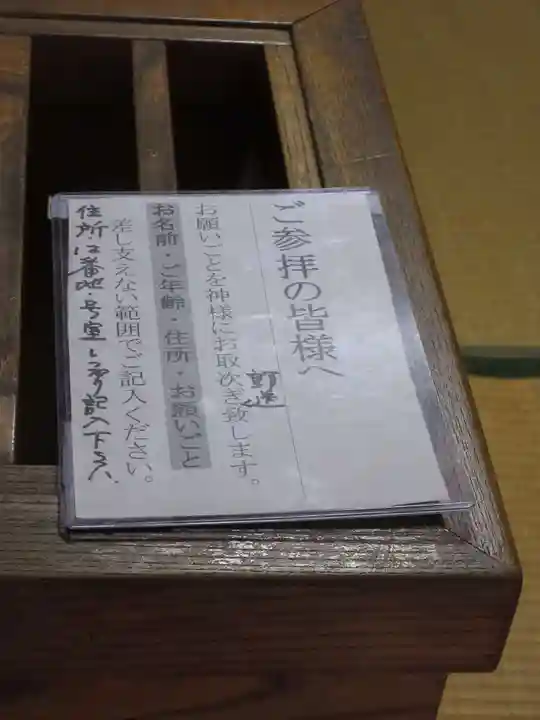 ご参拝の皆様へ
お願いごとを神様にお取次ぎ致します。
お名前・ご年齢・住所・お願いごと
差し支えない範囲でご記入ください。
住所は番地・号室
記入下さい